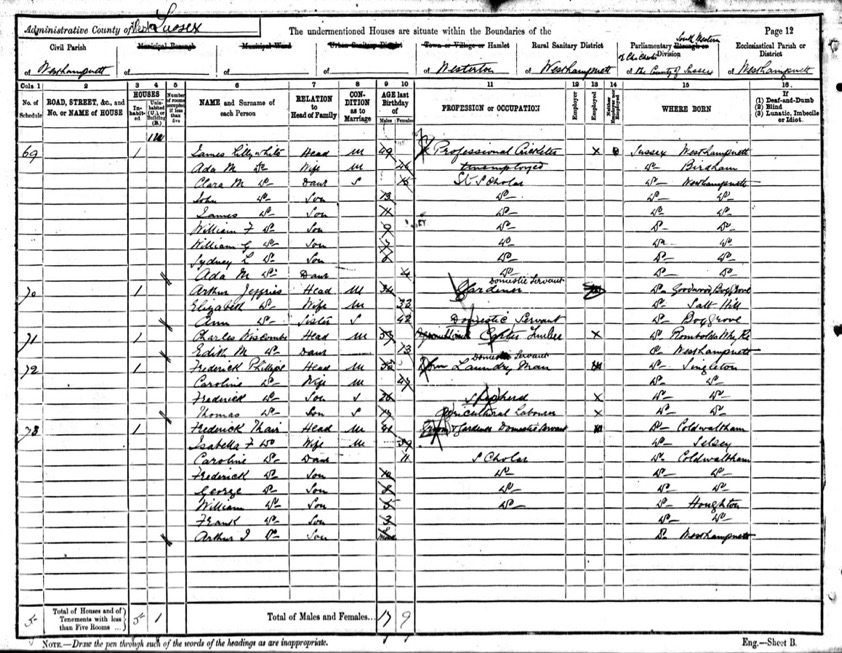 Administrative County of West Sussex The undermentioned Houses are situate within the Boundaries of the Page 12
Civil Parish Municipal Borough Municipal Ward Urban Sanitary District Town or Village or Hamlet Rural Sanitary District Parliamentary Borough or Division Ecclesiastical Parish or District
South Western
of Westhampnett of of of of Westerton of Westhampnett of The County of Sussex of Westhampnett
Cols 1 2 3 4 5 6 7 8 9 10 11 12 13 14 15 16
No. of Schedule ROAD, STREET, &c., and No. or NAME of HOUSE HOUSES Inhabited Uninhabited (U.) or Building (B.) Number of rooms occupied if less than five NAME and Surname of each Person RELATION to Head of Family CONDITION as to Marriage AGE last Birthday of Males Females PROFESSION or OCCUPATION Employer Employed Neither Employer nor Employed WHERE BORN If (1) Deaf-and-Dumb (2) Blind (3) Lunatic, Imbecile or Idiot.
69 1 James Lillywhite Head M 49 Professional Cricketer X Sussex Westhampnett
Ada M Do Wife M unemployed Do Birdham
Clara M Do Daur S Scholar Do Westhampnett
John Do Son 13 Do Do Do
James Do Son Do Do Do
William F Do Son 9 Do Do Do
William G Do Son Do Do Do
Sydney L Do Son Do Do Do
Ada M Do Daur 4 Do Do Do
70 1 Arthur Jeffries Head M 34 Gardener Domestic Servant Do Goodwood Boxgrove
Elizabeth Do Wife M 33 Do Salt Hill
Ann Do Sister S 42 Domestic Servant Do Boxgrove
71 1 Charles Wiscombe Head M X Do
Edith M Do Daur 13 Do Westhampnett
72 1 Frederick Phillips Head M Laundry Man Domestic Servant Do Singleton
Caroline Do Wife M Do Do
Frederick Do Son S Shepherd X Do Do
Thomas Do Son S Agricultural Labourer X Do Do
73 1 Frederick Thair Head M 41 Groom & Gardener Domestic Servant Do Coldwaltham
Isabella F Do Wife M 39 Do Selsey
Caroline Do Daur 11 Scholar Do Coldwaltham
Frederick Do Son 10 Do Do Do
George Do Son 8 Do Do Do
William Do Son 5 Do Do Houghton
Frank Do Son 3 Do Do
Arthur J Do Son Do Westhampnett
5 Total of Houses and of Tenements with less than Five Rooms 5 1 Total of Males and Females... 17 9
NOTE.—Draw the pen through such of the words of the headings as are inappropriate. Eng.—Sheet B.